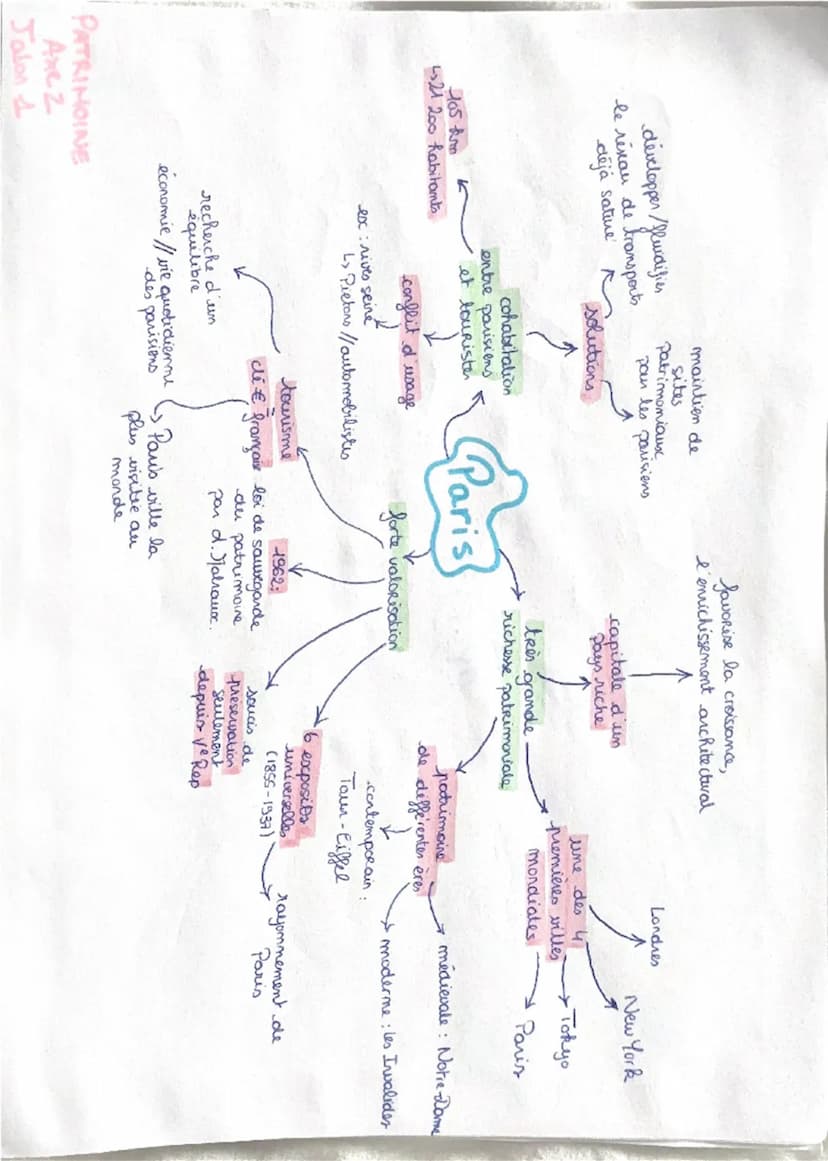 PATRIMOINE
Axe 2
Jalon 1
Paris
cohabitation
entre parisiens
et touristes
solutions
développer/fluidifier
le réseau de transports
déjà saturé
maintien de
sites
patrimoniaux
pour les parisiens
105 km
↳ 21 200 habitants
conflit d'usage
ex : rives seine
↳ Piétons // automobilistes
très grande
richesse patrimoniale
capitale d'un
pays riche
favorise la croissance,
l'enrichissement architectural
une des 4
premières villes
mondiales
Londres
New York
Tokyo
Paris
patrimoine
de différentes ères
médiévale : Notre-Dame
moderne : les Invalides
contemporain :
Tour-Eiffel
forte valorisation
tourisme
=
clé € français
recherche d'un
équilibre
économie // vie quotidienne
des parisiens
↳ Paris ville la
plus visitée au
monde
1962:
loi de sauvegarde
du patrimoine
par d. Malraux.
soucis de
préservation
seulement
depuis Ve Rep
6 exposit°
universelles
(1855-1937)
rayonnement de
Paris